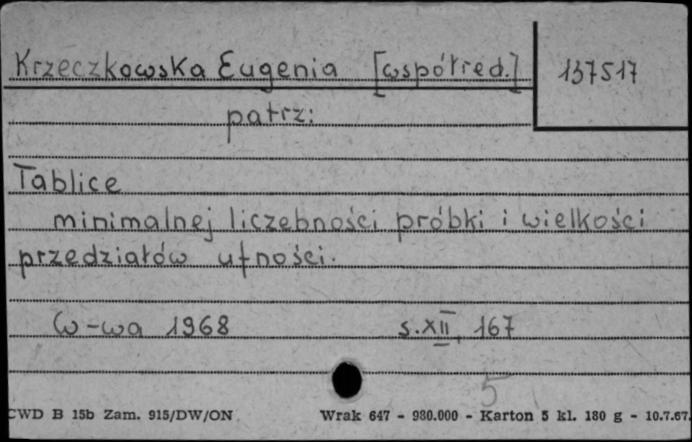 Krzeczkowska Eugenia [współred.] 137517
patrz:
Tablice
minimalnej liczebności próbki i wielkości
przedziałów ufności.
W-wa 1968 s.XII, 167
5
CWD B 15b Zam. 915/DW/ON Wrak 647 - 980.000 - Karton 5 kl. 180 g - 10.7.67.